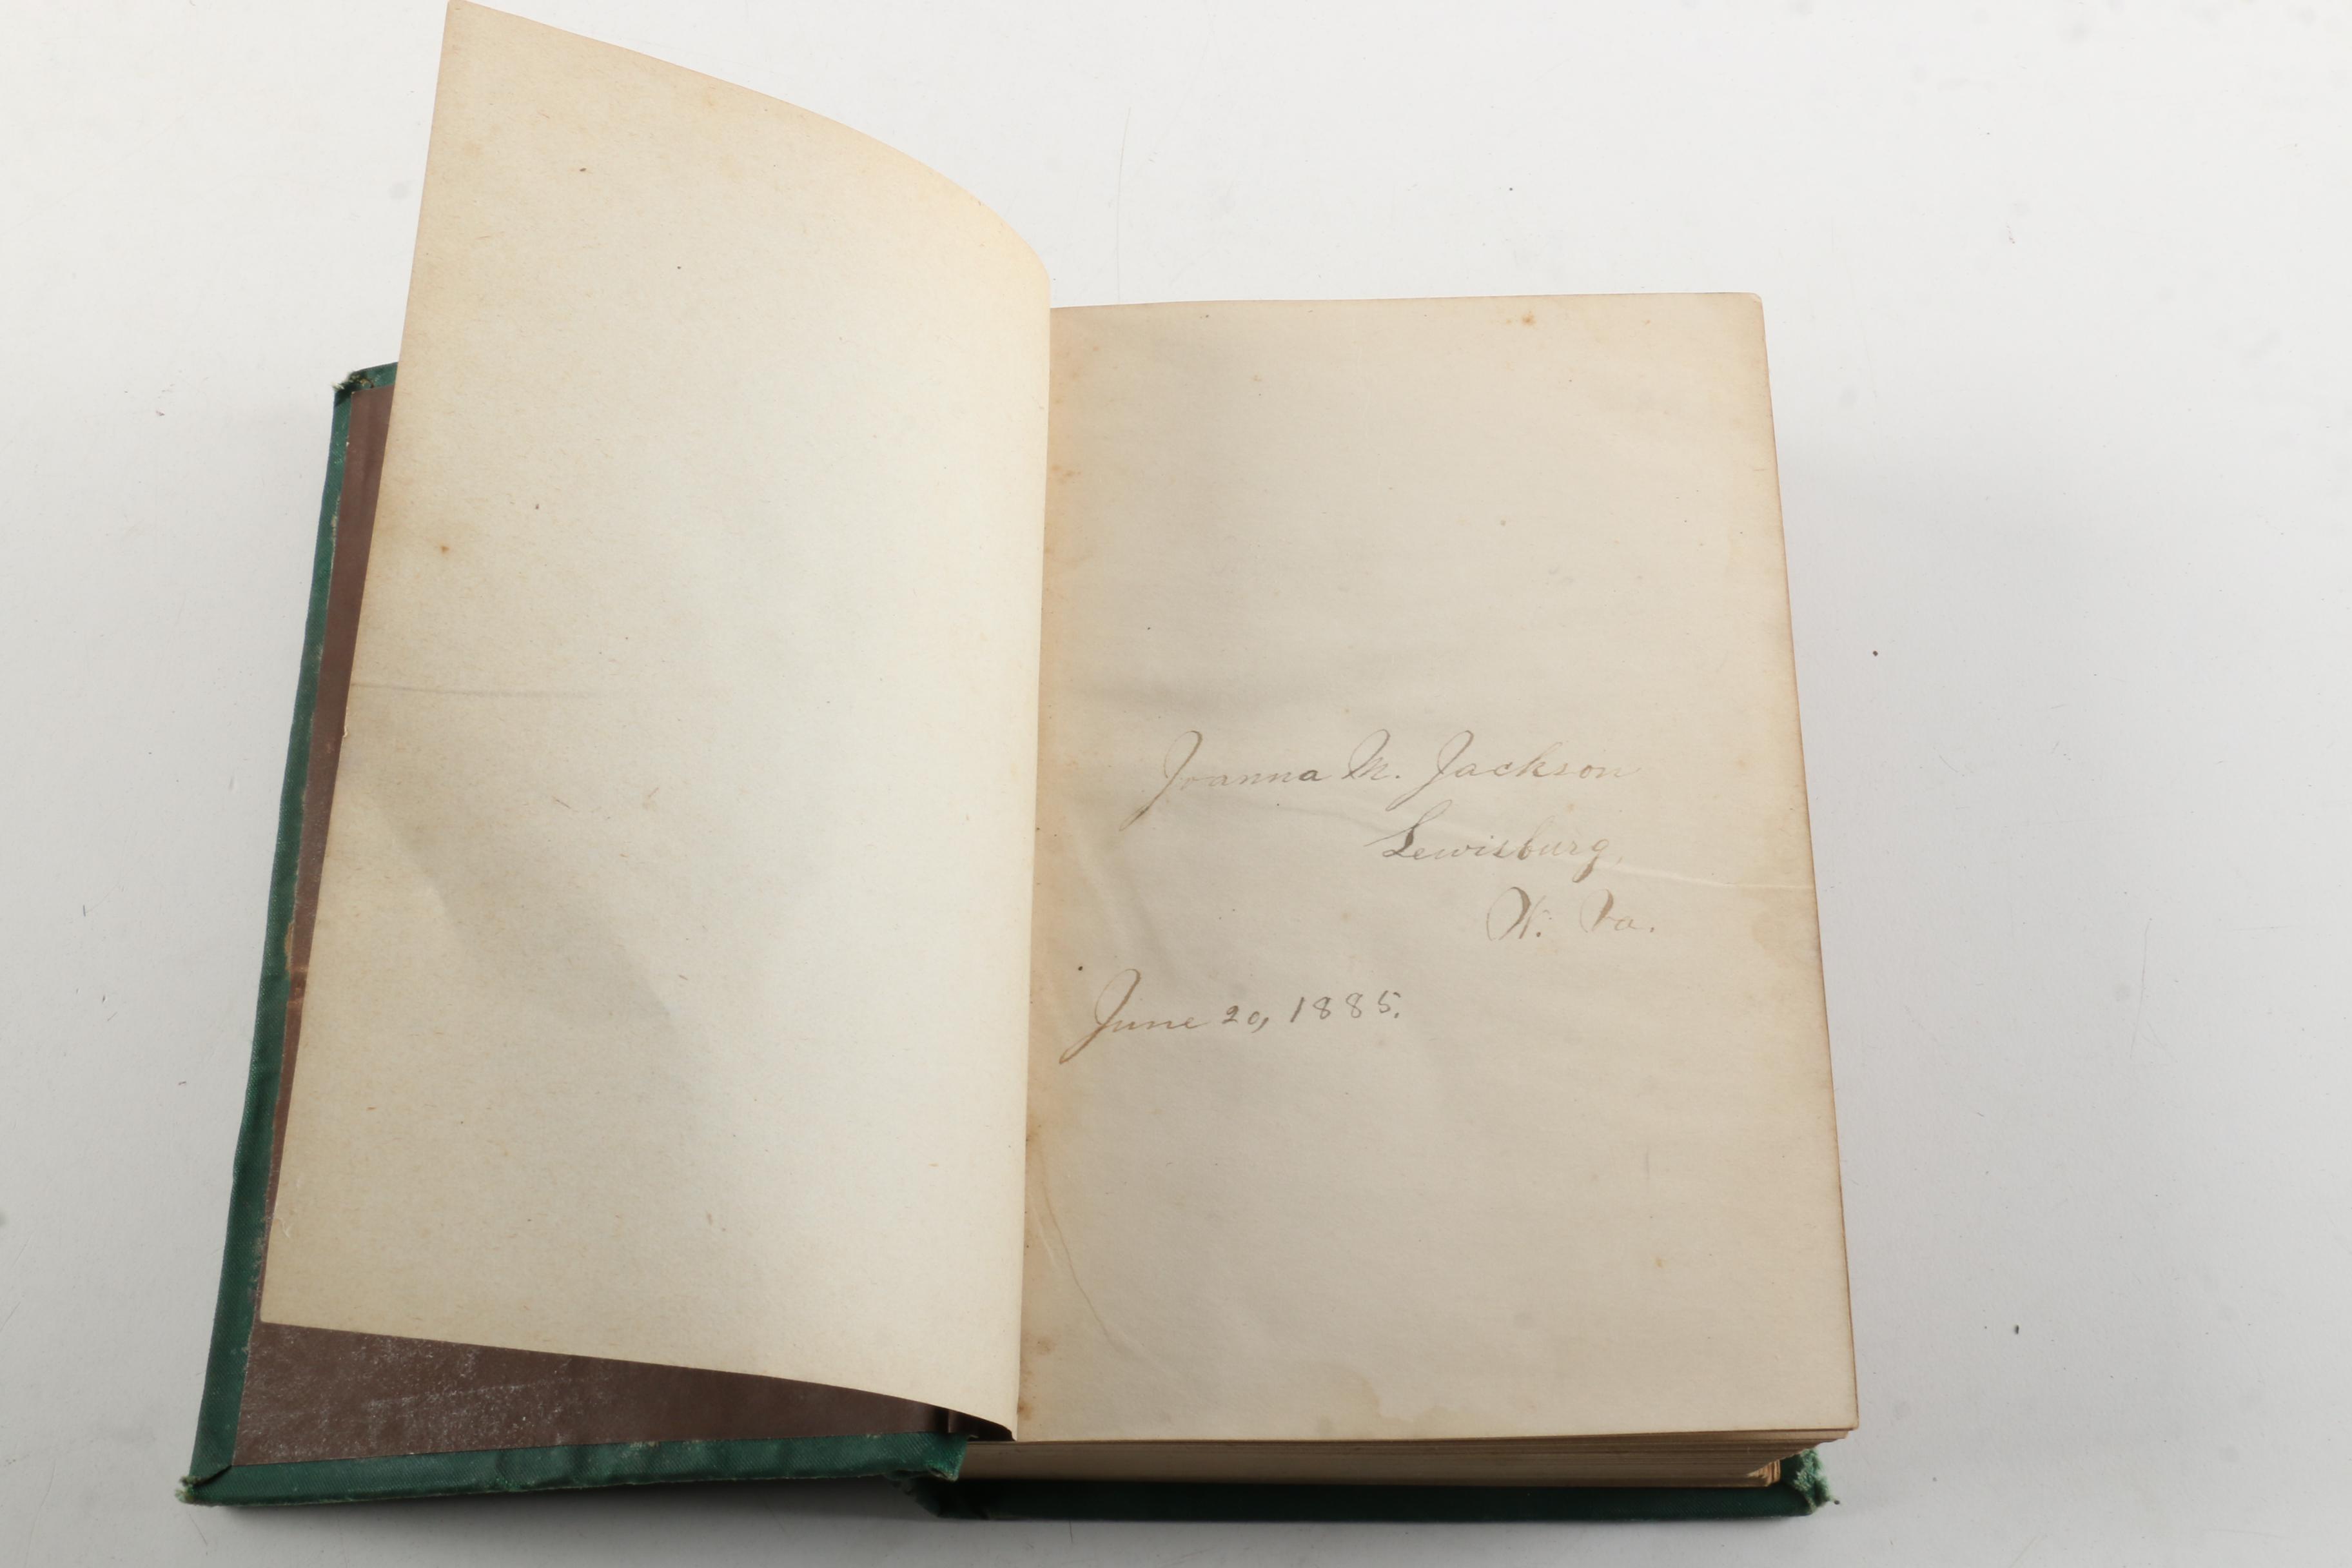 Joanna M. Jackson
Lewisburg,
W. Va.
June 20, 1885.